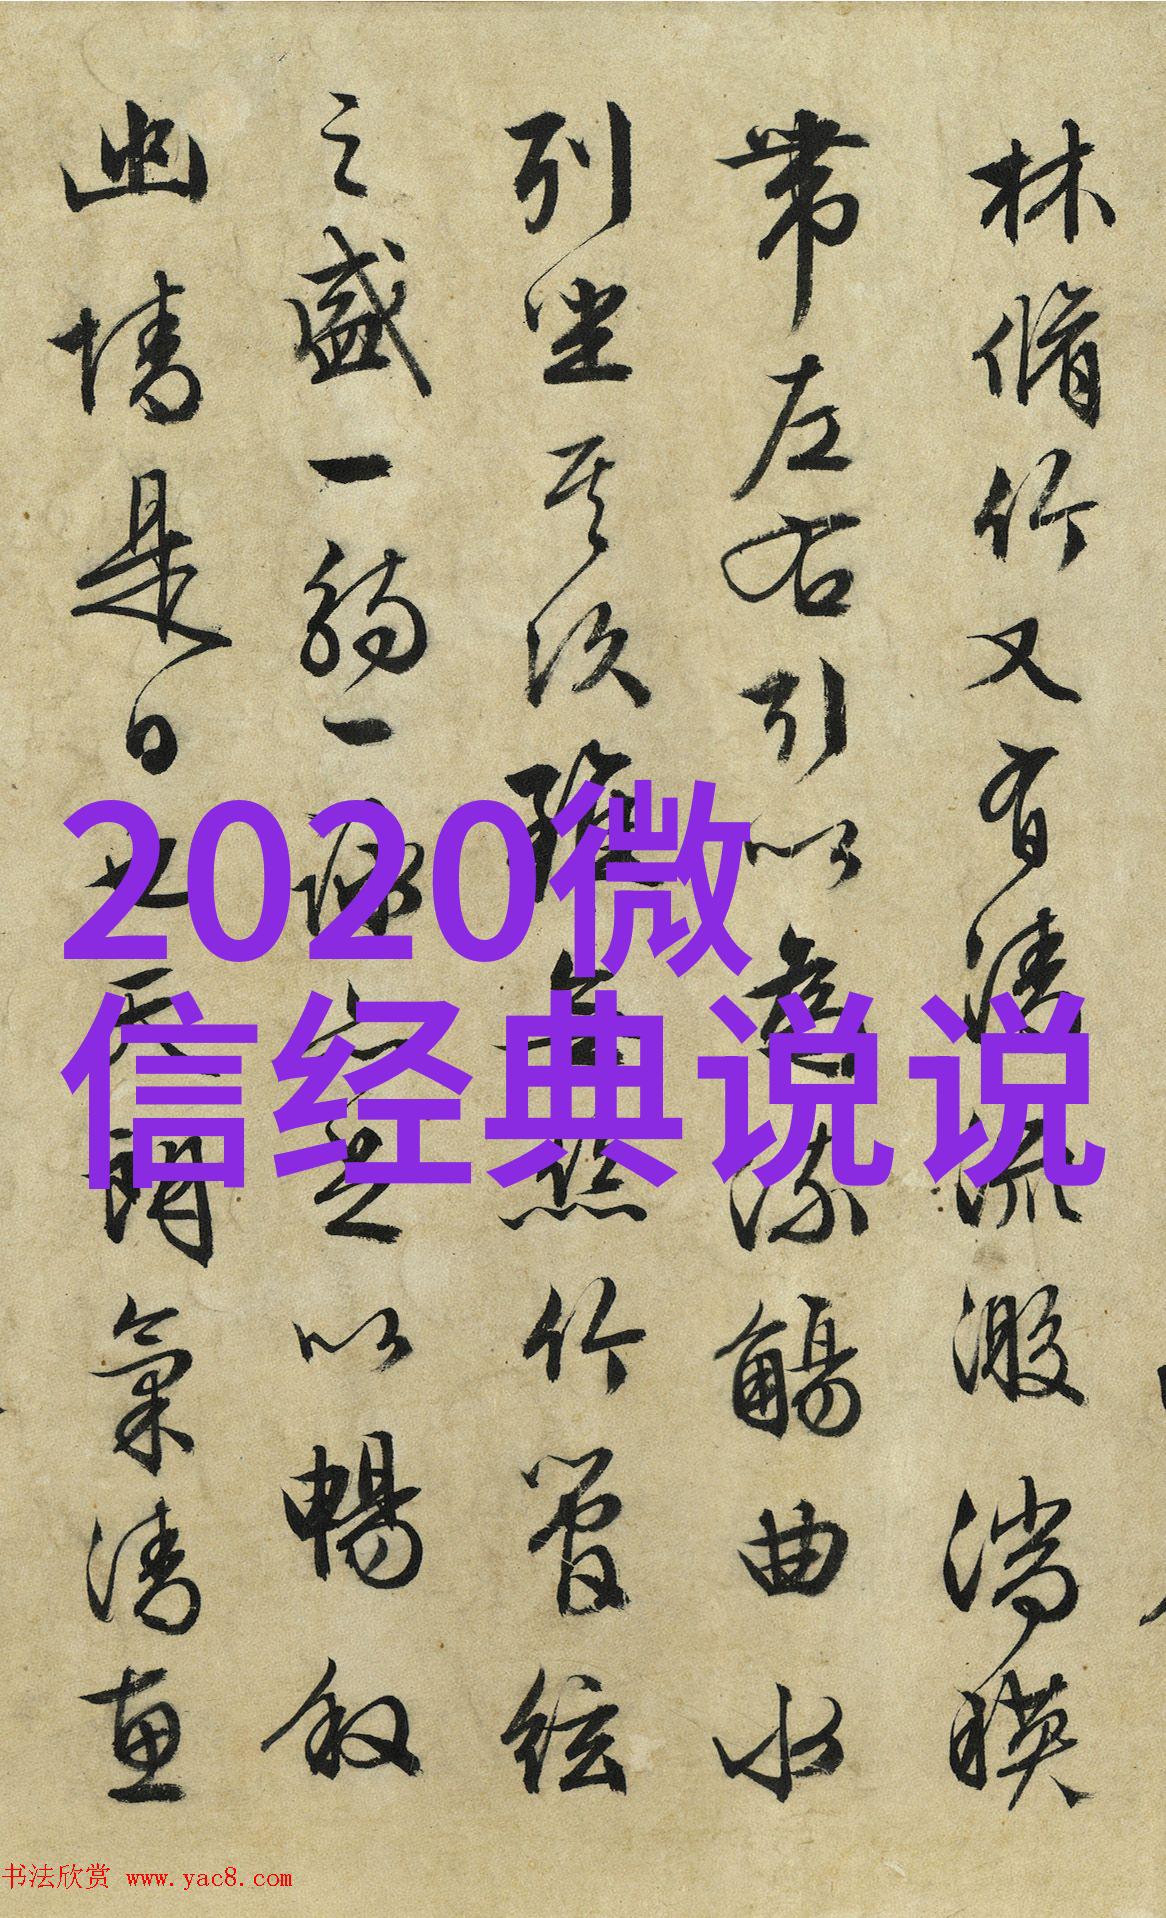 林脩竹又有清流激湍暎
帶左右引以為流觴曲水
列坐其次雖無絲竹管弦
之盛一觴一詠亦足以暢叙
幽情是日也天朗氣清惠
2020微
信经典说说
书法欣赏 www.yac8.com